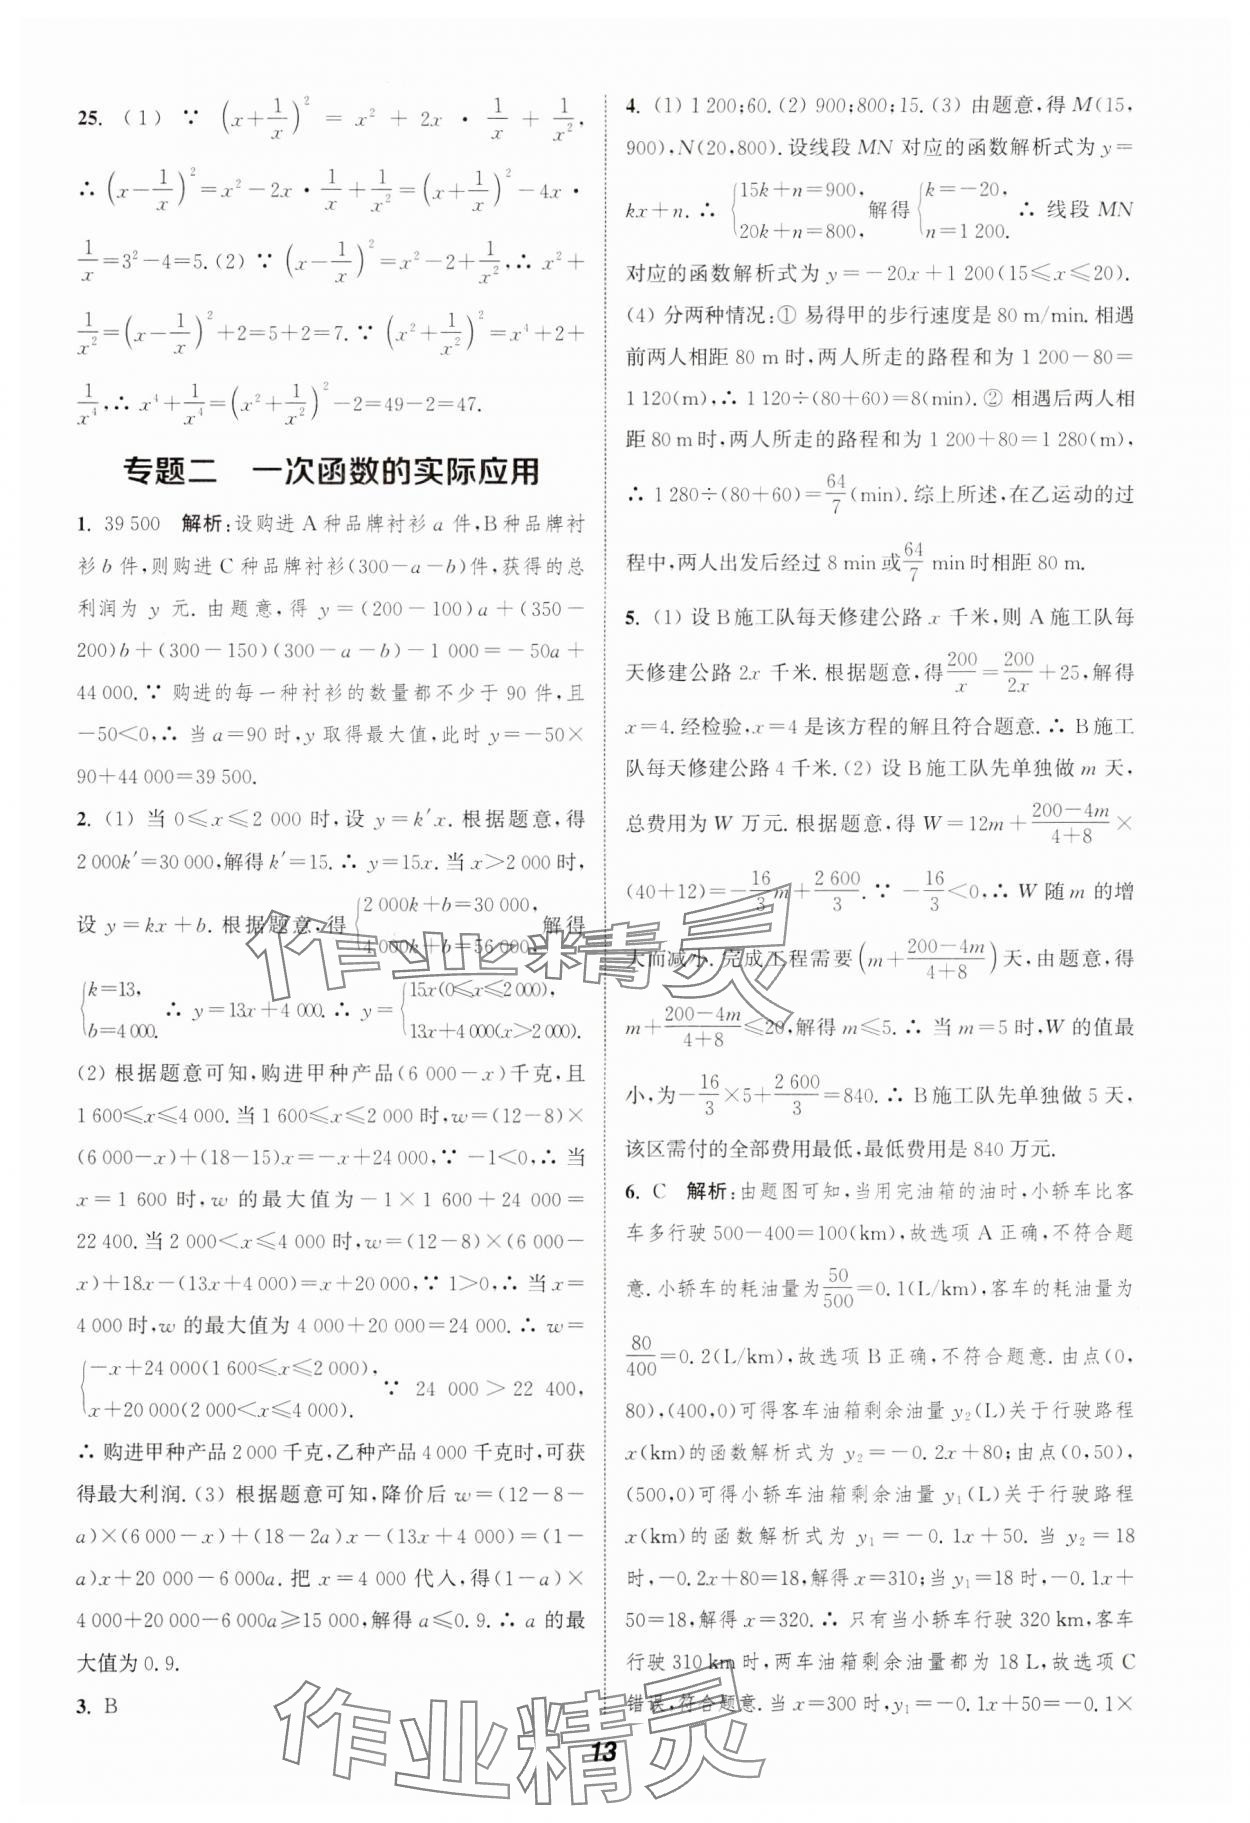 25. (1) ∵ (x+1/x)² = x² + 2x · 1/x + 1/x²,
∴ (x−1/x)²=x²−2x·1/x+1/x²=(x+1/x)²−4x·
1/x=3²−4=5. (2) ∵ (x−1/x)²=x²−2+1/x²,∴ x²+
1/x²=(x−1/x)²+2=5+2=7. ∵ (x²+1/x²)²=x⁴+2+
1/x⁴,∴ x⁴+1/x⁴=(x²+1/x²)²−2=49−2=47.
专题二 一次函数的实际应用
1. 39 500 解析:设购进 A 种品牌衬衫 a 件,B 种品牌衬
衫 b 件,则购进 C 种品牌衬衫(300−a−b)件,获得的总
利润为 y 元. 由题意,得 y=(200−100)a+(350−
200)b+(300−150)(300−a−b)−1 000=−50a+
44 000. ∵ 购进的每一种衬衫的数量都不少于 90 件,且
−50<0,∴ 当 a=90 时,y 取得最大值,此时 y=−50×
90+44 000=39 500.
2. (1) 当 0≤x≤2 000 时,设 y=k′x. 根据题意,得
2 000k′=30 000,解得 k′=15. ∴ y=15x. 当 x>2 000 时,
设 y=kx+b. 根据题意,得 {2 000k+b=30 000, 4 000k+b=56 000, 解得
{k=13, b=4 000. ∴ y=13x+4 000. ∴ y={15x(0≤x≤2 000), 13x+4 000(x>2 000).
(2) 根据题意可知,购进甲种产品(6 000−x)千克,且
1 600≤x≤4 000. 当 1 600≤x≤2 000 时,w=(12−8)×
(6 000−x)+(18−15)x=−x+24 000,∵ −1<0,∴ 当
x=1 600 时,w 的最大值为−1×1 600+24 000=
22 400. 当 2 000<x≤4 000 时,w=(12−8)×(6 000−
x)+18x−(13x+4 000)=x+20 000,∵ 1>0,∴ 当 x=
4 000 时,w 的最大值为 4 000+20 000=24 000. ∴ w=
{−x+24 000(1 600≤x≤2 000), x+20 000(2 000<x≤4 000). ∵ 24 000>22 400,
∴ 购进甲种产品 2 000 千克,乙种产品 4 000 千克时,可获
得最大利润. (3) 根据题意可知,降价后 w=(12−8−
a)×(6 000−x)+(18−2a)x−(13x+4 000)=(1−
a)x+20 000−6 000a. 把 x=4 000 代入,得(1−a)×
4 000+20 000−6 000a≥15 000,解得 a≤0. 9. ∴ a 的最
大值为 0. 9.
3. B
4. (1) 1 200;60. (2) 900;800;15. (3) 由题意,得 M(15,
900),N(20,800). 设线段 MN 对应的函数解析式为 y=
kx+n. ∴ {15k+n=900, 20k+n=800, 解得 {k=−20, n=1 200. ∴ 线段 MN
对应的函数解析式为 y=−20x+1 200(15≤x≤20).
(4) 分两种情况:① 易得甲的步行速度是 80 m/min. 相遇
前两人相距 80 m 时,两人所走的路程和为 1 200−80=
1 120(m),∴ 1 120÷(80+60)=8(min). ② 相遇后两人相
距 80 m 时,两人所走的路程和为 1 200+80=1 280(m),
∴ 1 280÷(80+60)=64/7(min). 综上所述,在乙运动的过
程中,两人出发后经过 8 min 或64/7 min 时相距 80 m.
5. (1) 设 B 施工队每天修建公路 x 千米,则 A 施工队每
天修建公路 2x 千米. 根据题意,得200/x=200/2x+25,解得
x=4. 经检验,x=4 是该方程的解且符合题意. ∴ B 施工
队每天修建公路 4 千米. (2) 设 B 施工队先单独做 m 天,
总费用为 W 万元. 根据题意,得 W=12m+(200−4m)/(4+8)×
(40+12)=−16/3m+2 600/3. ∵ −16/3<0,∴ W 随 m 的增
大而减小. 完成工程需要(m+(200−4m)/(4+8))天,由题意,得
m+(200−4m)/(4+8)≤20,解得 m≤5. ∴ 当 m=5 时,W 的值最
小,为−16/3×5+2 600/3=840. ∴ B 施工队先单独做 5 天,
该区需付的全部费用最低,最低费用是 840 万元.
6. C 解析:由题图可知,当用完油箱的油时,小轿车比客
车多行驶 500−400=100(km),故选项 A 正确,不符合题
意. 小轿车的耗油量为50/500=0. 1(L/km),客车的耗油量为
80/400=0. 2(L/km),故选项 B 正确,不符合题意. 由点(0,
80),(400,0)可得客车油箱剩余油量 y₂(L)关于行驶路程
x(km)的函数解析式为 y₂=−0. 2x+80;由点(0,50),
(500,0)可得小轿车油箱剩余油量 y₁(L)关于行驶路程
x(km)的函数解析式为 y₁=−0. 1x+50. 当 y₂=18
时,−0. 2x+80=18,解得 x=310;当 y₁=18 时,−0. 1x+
50=18,解得 x=320. ∴ 只有当小轿车行驶 320 km,客车
行驶 310 km 时,两车油箱剩余油量都为 18 L,故选项 C
错误,符合题意. 当 x=300 时,y₁=−0. 1x+50=−0. 1×
13
作业精灵
作业精灵